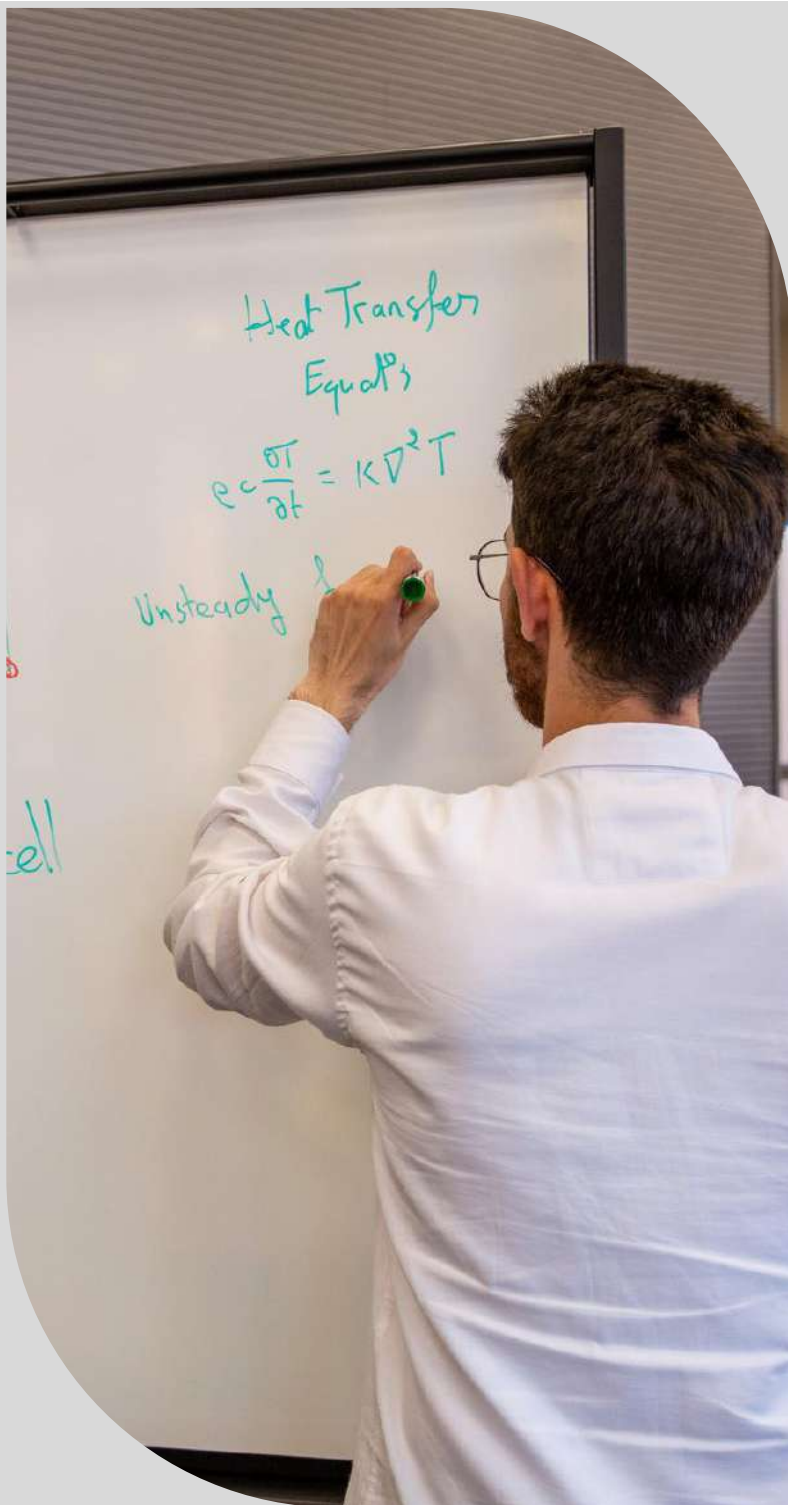 Heat Transfer
Equatºs
ρc ∂T/∂t = K∇²T
Unsteady
cell